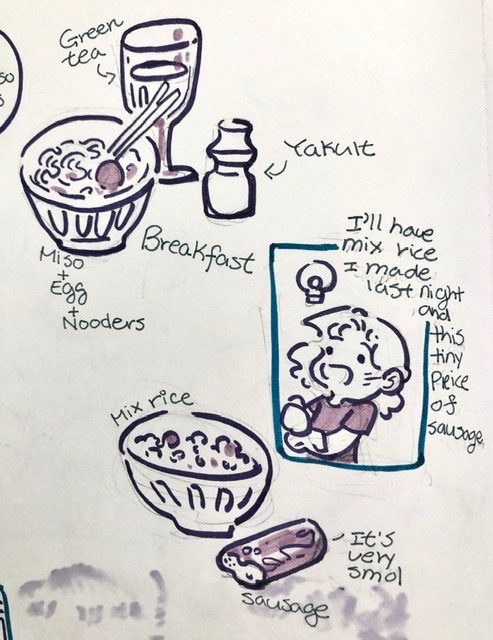 Green
tea
Yakult
Breakfast
Miso
+
Egg
+
Nooders
I'll have
mix rice
I made
last night
and
this
tiny
Pieice
of
sausage
Mix rice
It's
very
smol
sausage